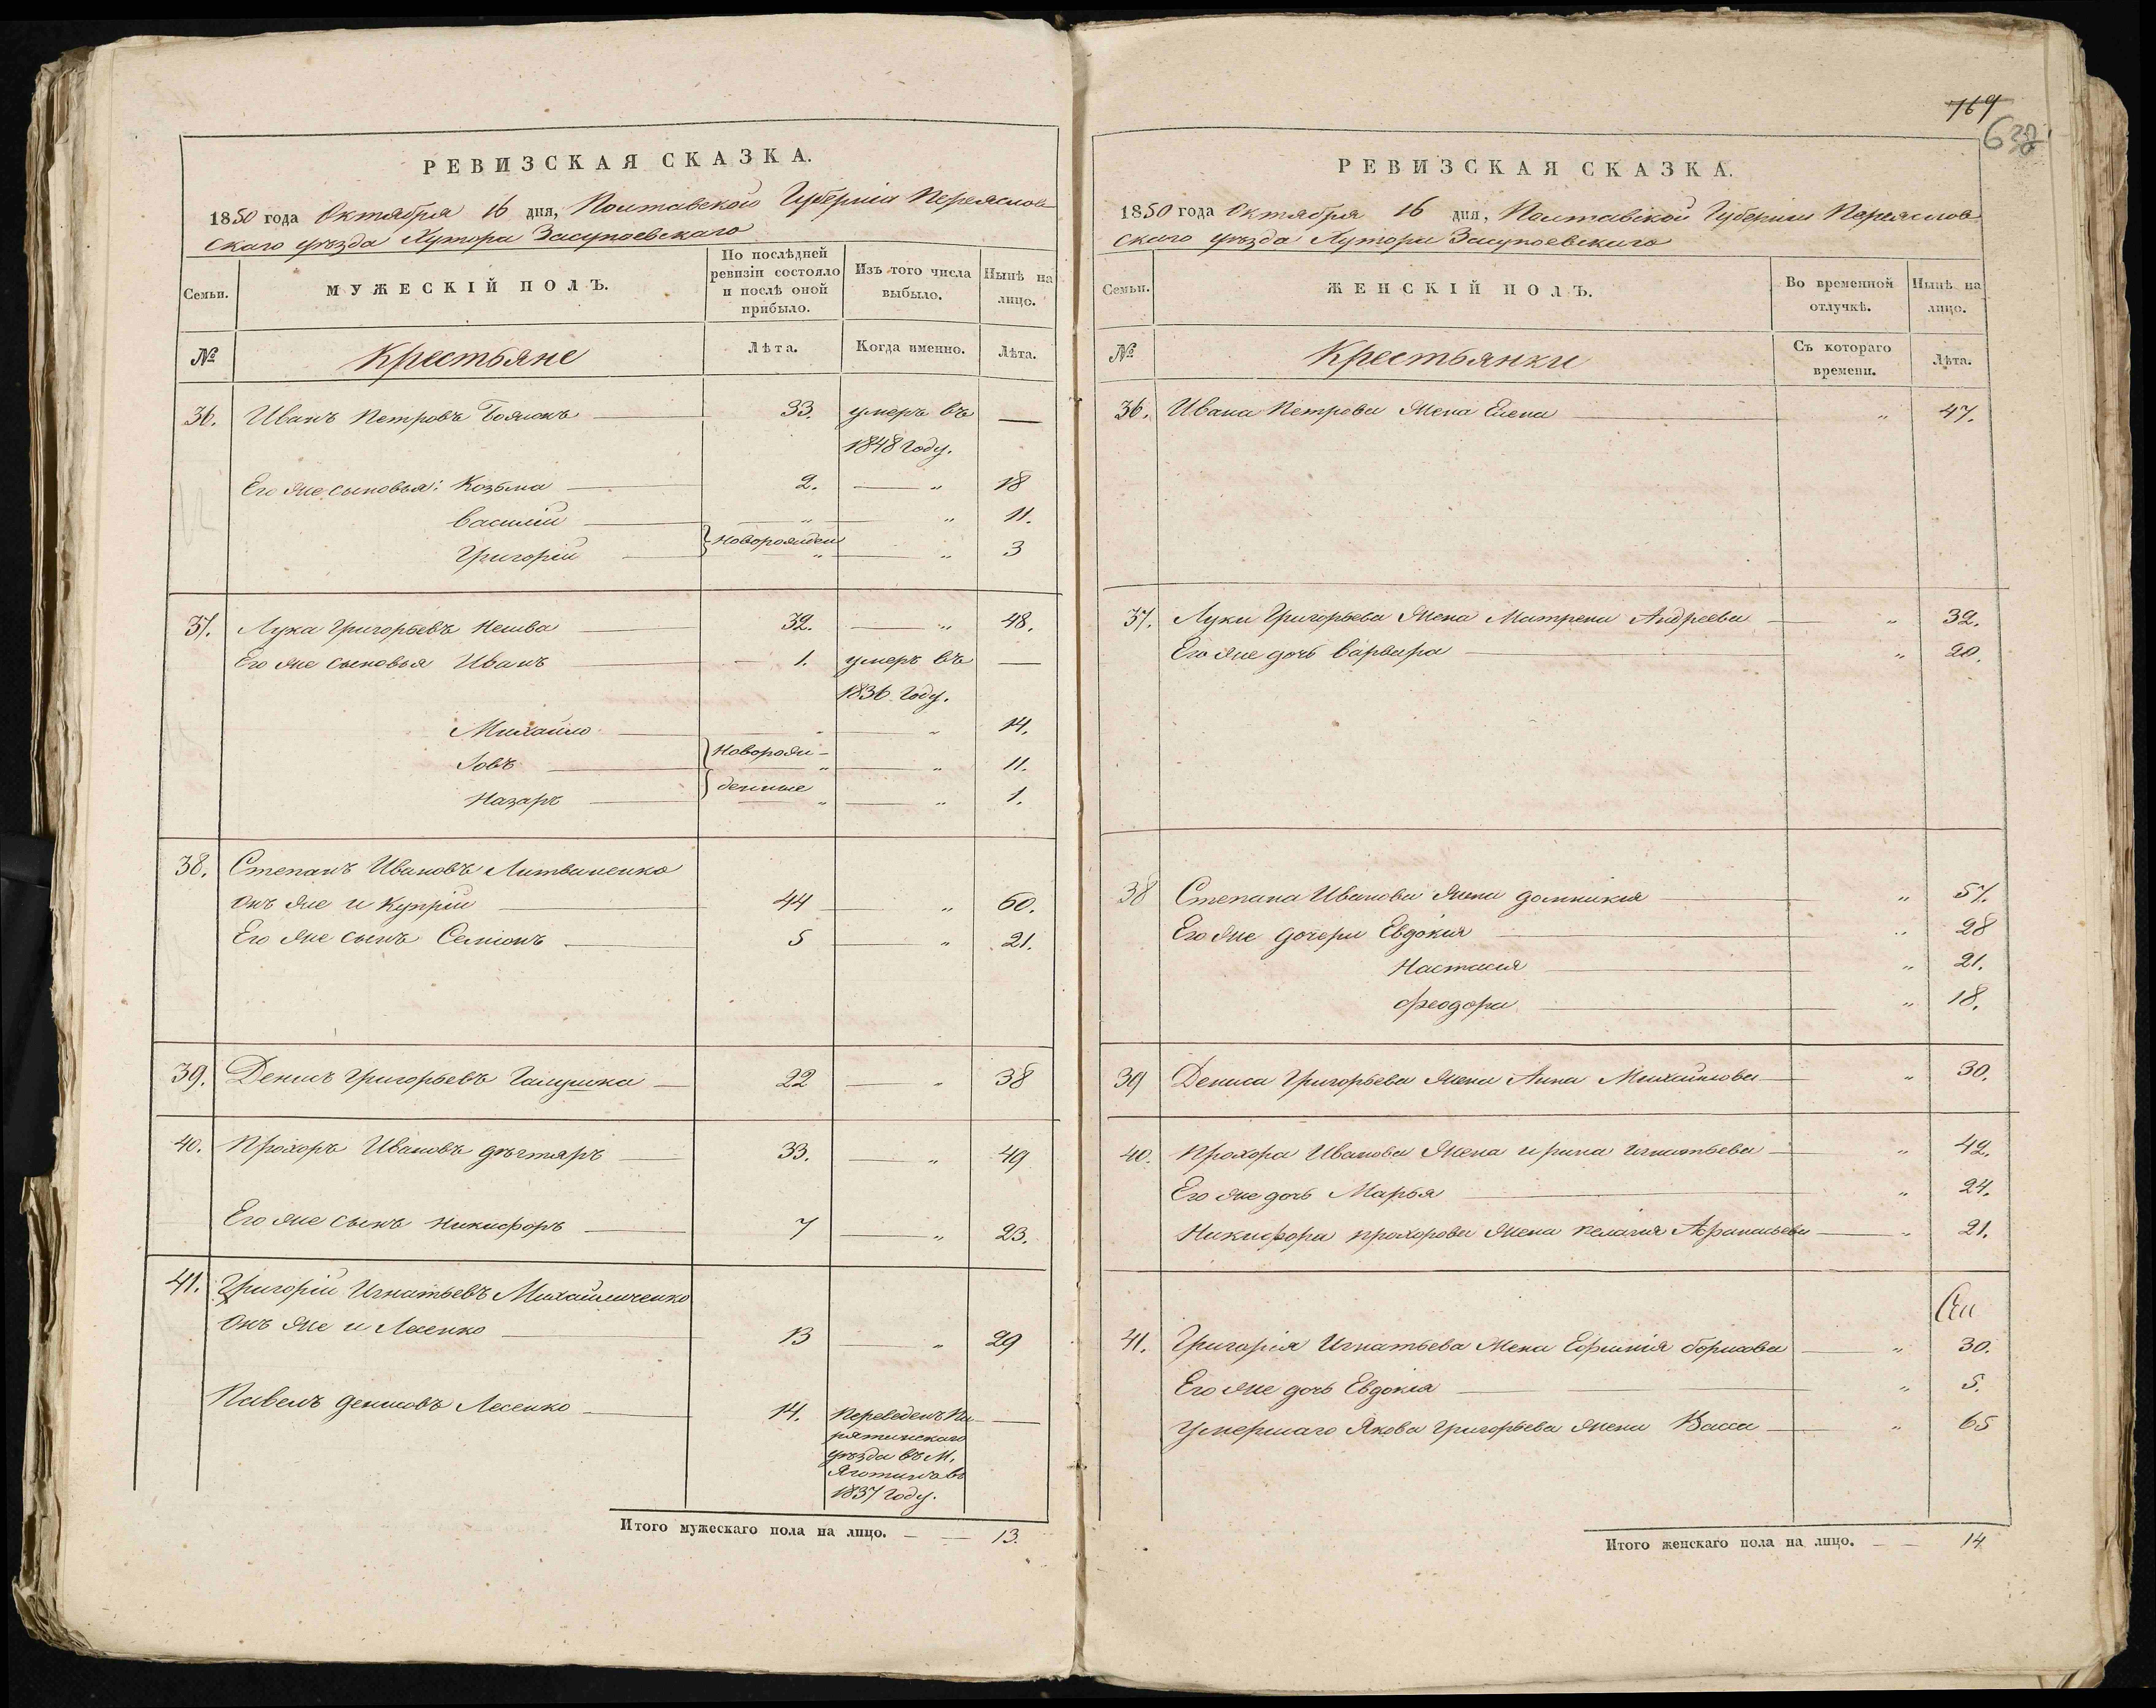 РЕВИЗСКАЯ СКАЗКА.
1850 года Октября 16 дня, Полтавской Губерніи Переяслов
скаго уѣзда Хутора Засупоевскаго
Семьи. МУЖЕСКІЙ ПОЛЪ. По послѣдней ревизіи состояло и послѣ оной прибыло. Изъ того числа выбыло. Нынѣ на лицо.
№ Крестьяне Лѣта. Когда именно. Лѣта.
36. Иванъ Петровъ 33. умеръ въ —
1848 году.
Его же сыновья: Козьма 2. — „ 18
Василій „ „ 11.
Григорій Новорожден „ „ 3
37. Лука Григорьевъ 32. — „ 48.
Его же сыновья Иванъ 1. умеръ въ —
1836 году.
Михайло „ „ 14.
Іовъ Новорож- „ „ 11.
Назаръ денные „ „ 1.
38. Степанъ Ивановъ Литвиненко
онъ же и Купрій 44 — „ 60.
Его же сынъ Семіонъ 5 — „ 21.
39. Денисъ Григорьевъ Галушка 22 — „ 38
40. Прохоръ Ивановъ дѣгтяръ 33. — „ 49
Его же сынъ Никифоръ 7 — „ 23.
41. Григорій Игнатьевъ Михайличенко
онъ же и Лесенко 13 — „ 29
Павелъ Денисовъ Лесенко 14. Переведенъ Пи- —
рятинскаго
уѣзда въ М.
Яготинъ въ
1837 году.
Итого мужескаго пола на лицо. — — 13.
769
638
РЕВИЗСКАЯ СКАЗКА.
1850 года Октября 16 дня, Полтавской Губерніи Переяслов
скаго уѣзда Хутора Засупоевскаго
Семьи. ЖЕНСКІЙ ПОЛЪ. Во временной отлучкѣ. Нынѣ на лицо.
№ Крестьянки Съ котораго времени. Лѣта.
36. Ивана Петрова жена Елена „ 47.
37. Луки Григорьева жена Матрена Андреева „ 32.
Его же дочь Варвара „ 20.
38 Степана Иванова жена Домникія „ 57.
Его же дочери Евдокія „ 28
Настасія „ 21.
Феодора „ 18.
39 Дениса Григорьева жена Анна Михайлова „ 30.
40. Прохора Иванова жена Ирина Игнатьева „ 42.
Его же дочь Марья „ 24.
Никифора Прохорова жена Пелагія Афанасьева „ 21.
41. Григорія Игнатьева жена Ефимія Борисова „ 30.
Его же дочь Евдокія „ 5.
Умершаго Якова Григорьева жена Васса „ 65
Итого женскаго пола на лицо. — — 14